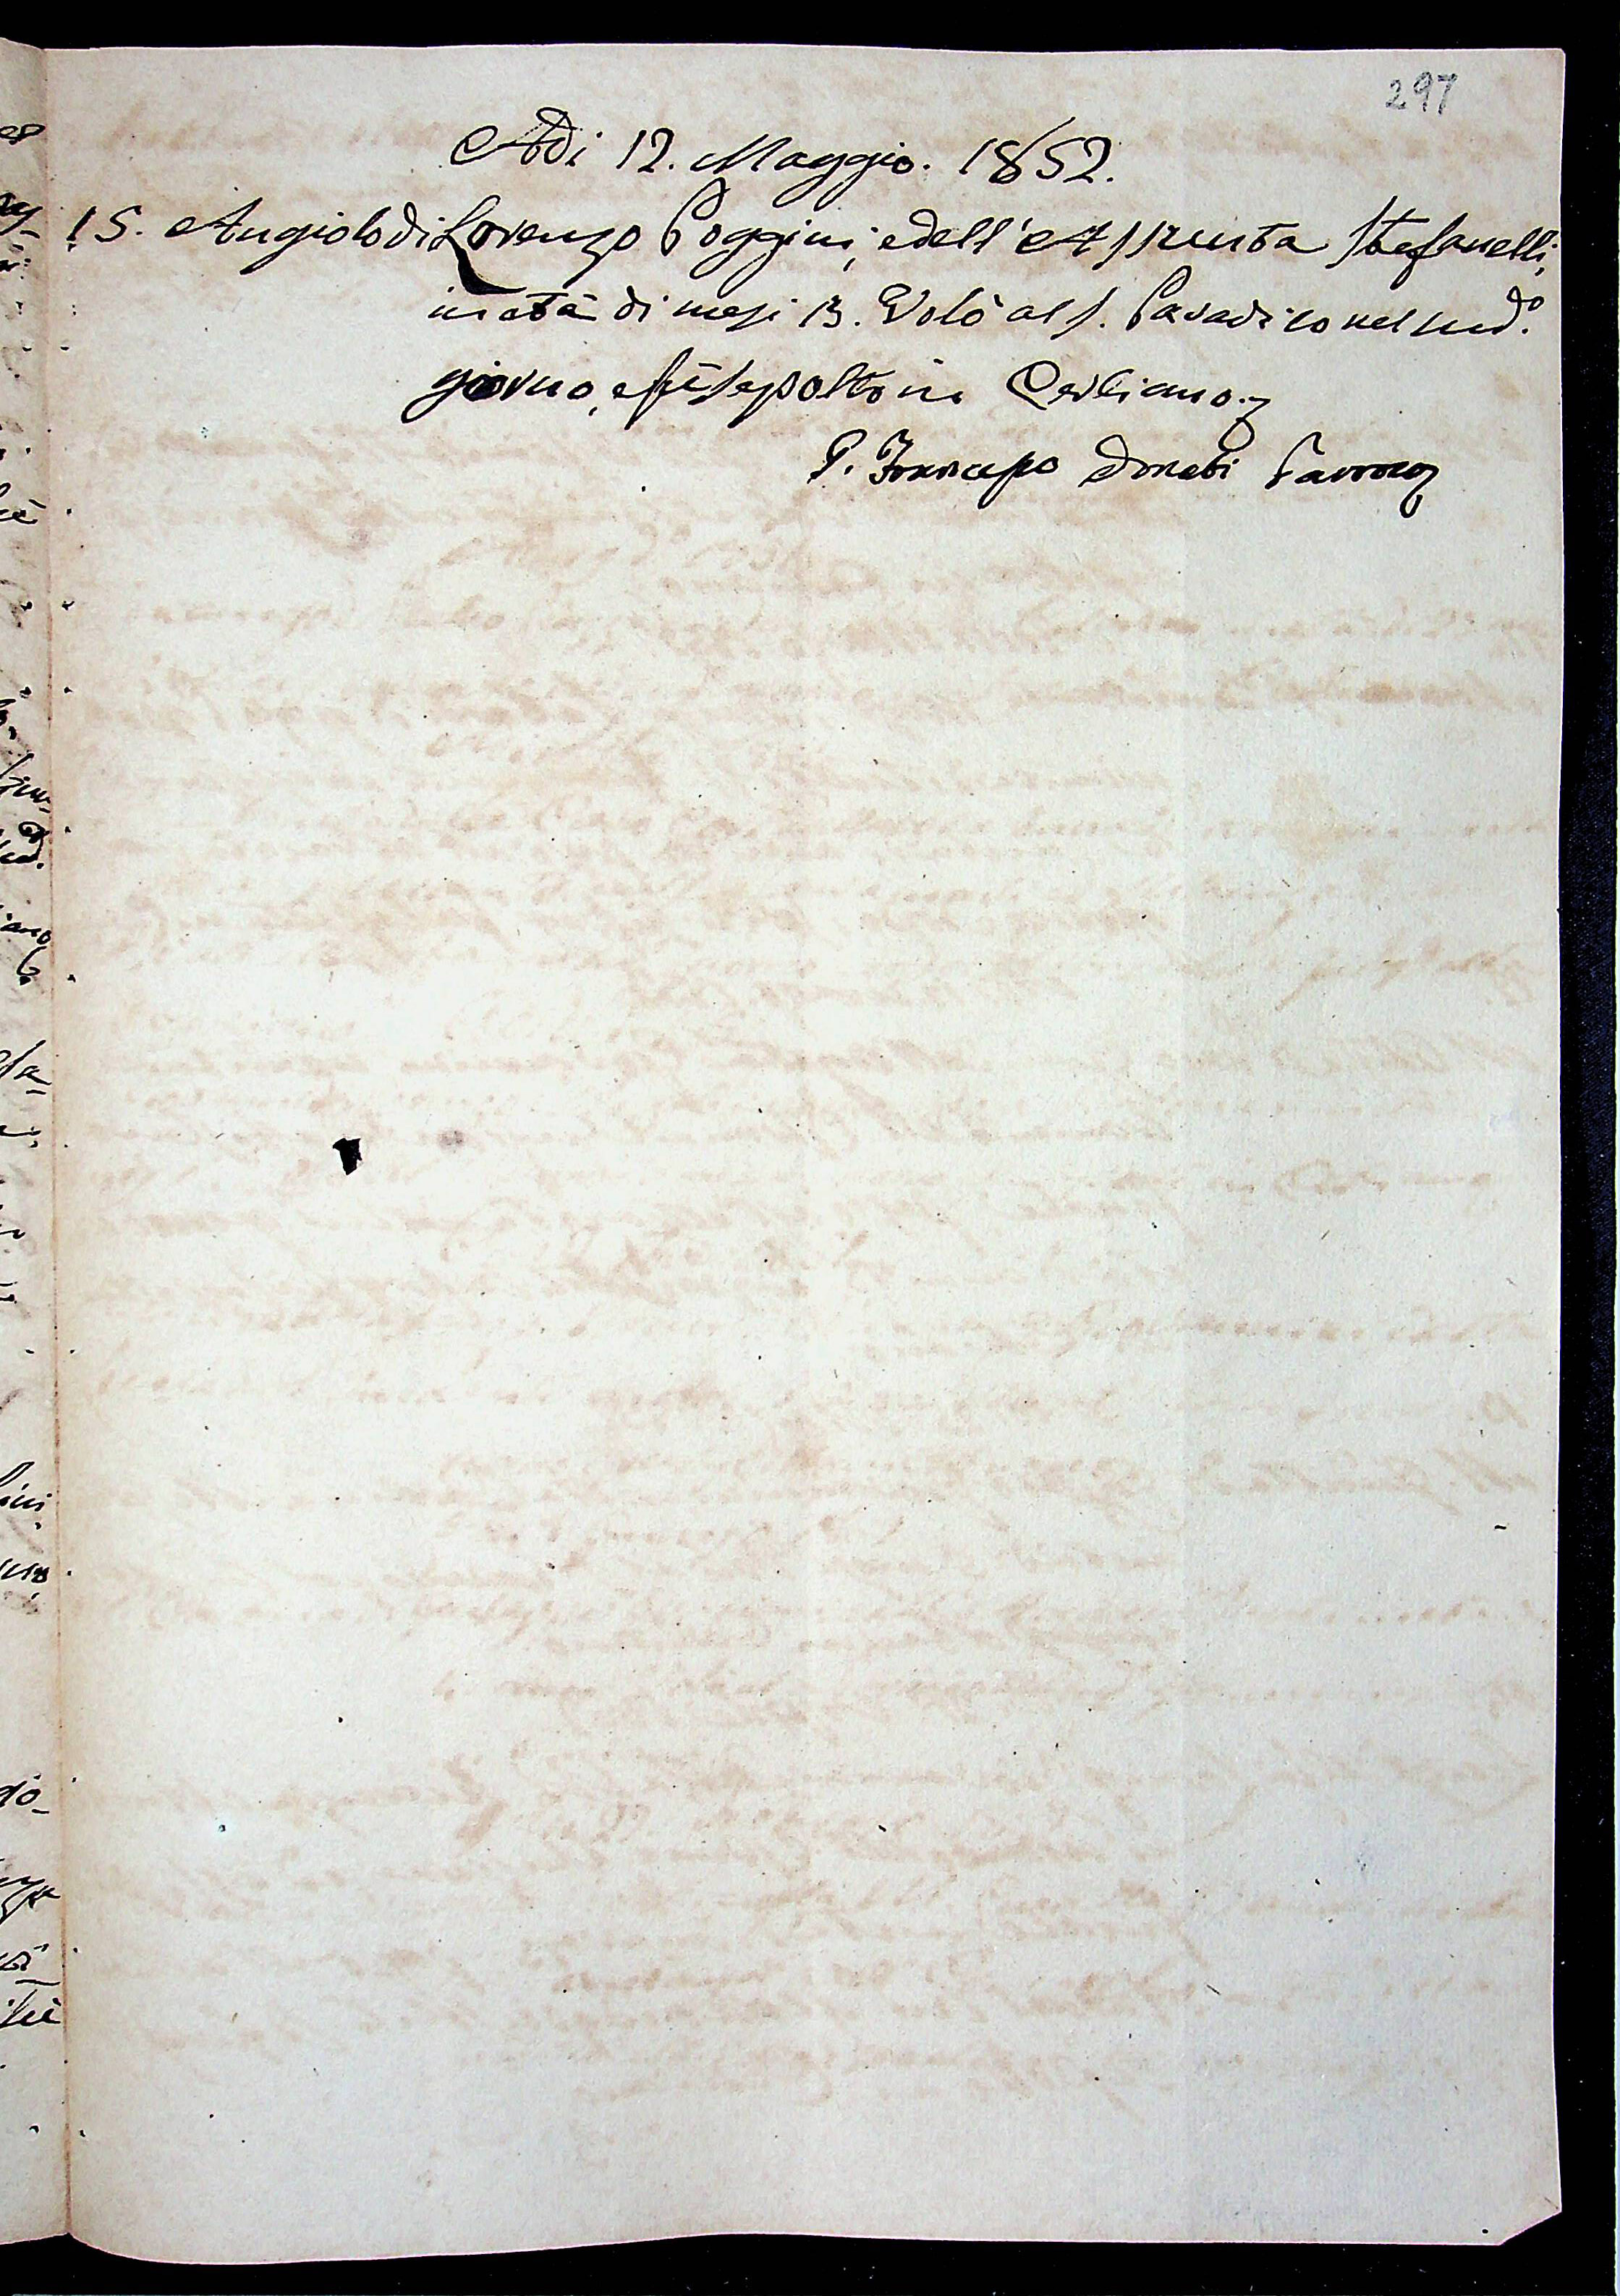 297
Adi 12. Maggio. 1852.
15. Angiolo di Lorenzo Poggini, e dell'Assunta Stefanelli,
in età di mesi 13. Volò al S. Paradiso nel sud.º
giorno, e fù sepolto in
P. Donati